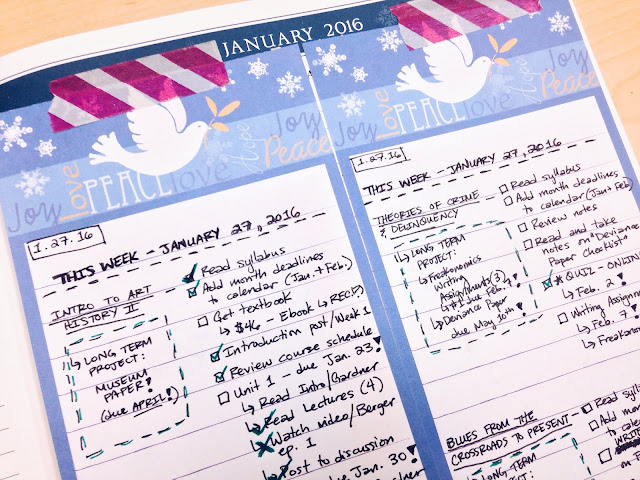 JANUARY 2016
Joy love PEACE love Joy Hope Peace
Joy love PEACE love Hope Joy Peace
1.27.16
THIS WEEK - JANUARY 27, 2016
INTRO TO ART
HISTORY II
↳ LONG TERM
PROJECT:
MUSEUM
PAPER!
(due APRIL!)
Read syllabus
Add month deadlines
to calendar (Jan + Feb.)
Get textbook
↳ $46 - Ebook ↳ RECF
Introduction post/Week 1
Review course schedule
Unit 1 - due Jan. 23!
↳ Read Intro/Gardner
↳ Read Lectures (4)
↳ Watch video/Berger
ep. 1
↳ Post to discussion
due Jan. 30!
1.27.16
THIS WEEK - JANUARY 27, 2016
THEORIES OF CRIME
& DELINQUENCY
↳ LONG TERM
PROJECT:
↳ Freakonomics
Writing
Assignments (3)
↳ #1 due Feb. 7!
↳ Deviance Paper
due May 10th!
Read syllabus
Add month deadlines
to calendar (Jan + Feb)
Review notes
Read and take
notes on "Deviance
Paper checklist"
* QUIZ - ONLINE
↳ Feb. 2!
Writing Assignm
↳ Feb. 7!
↳ Freakono
BLUES FROM THE
CROSSROADS TO PRESENT
↳ LONG TERM
PROJECT:
Read sylla
Add mont
to calen